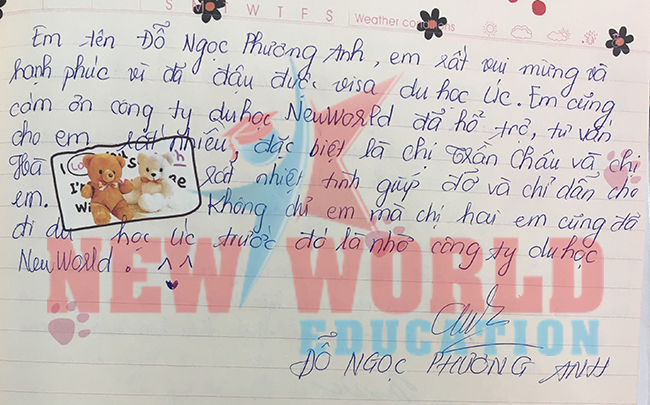 S M T W T F S Weather conditions
Em tên Đỗ Ngọc Phương Anh, em rất vui mừng và
hạnh phúc vì đã đậu được visa du học Úc. Em cũng
cảm ơn công ty du học NewWorld đã hổ trợ, tư vấn
cho em rất nhiều, đặc biệt là chị Trần Châu và chị
Hà rất nhiệt tình giúp đỡ và chỉ dẫn cho
em. Không chỉ em mà chị hai em cũng đã
đi du học Úc trước đó là nhờ công ty du học
NewWorld. ^^
NEW WORLD
EDUCATION
ĐỖ NGỌC PHƯƠNG ANH